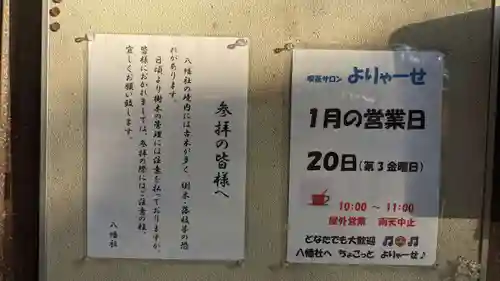 参拝の皆様へ
八幡社の境内には古木が多く、樹木・落枝等の恐
れがあります。
日頃より樹木の管理には注意を払っておりますが、
皆様におかれましては、参拝の際にはご注意の程、
宜しくお願い致します。
八幡社
喫茶サロン よりゃーせ
1月の営業日
20日(第3金曜日)
10:00 〜 11:00
屋外営業 雨天中止
どなたでも大歓迎
八幡社へ ちょこっと よりゃーせ♪